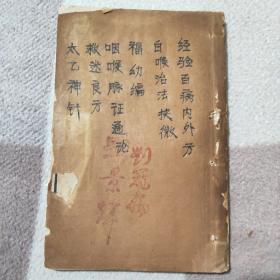 经验百病内外方
白喉治法抉微
福幼编
咽喉脉证通论
救迷良方
太乙神针